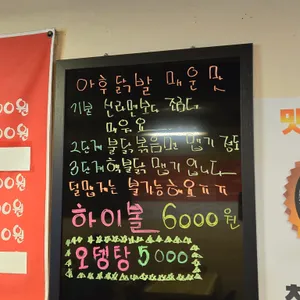 야후닭발 매운맛
기본 신라면보다 조금더
매워요
2단계 불닭볶음면 맵기 정도
3단계 핵불닭 맵기 입니다
덜맵게는 불가능해요ㅠㅠ
하이볼 6000원
오뎅탕 5000
00원
00원
00원
00원
맛